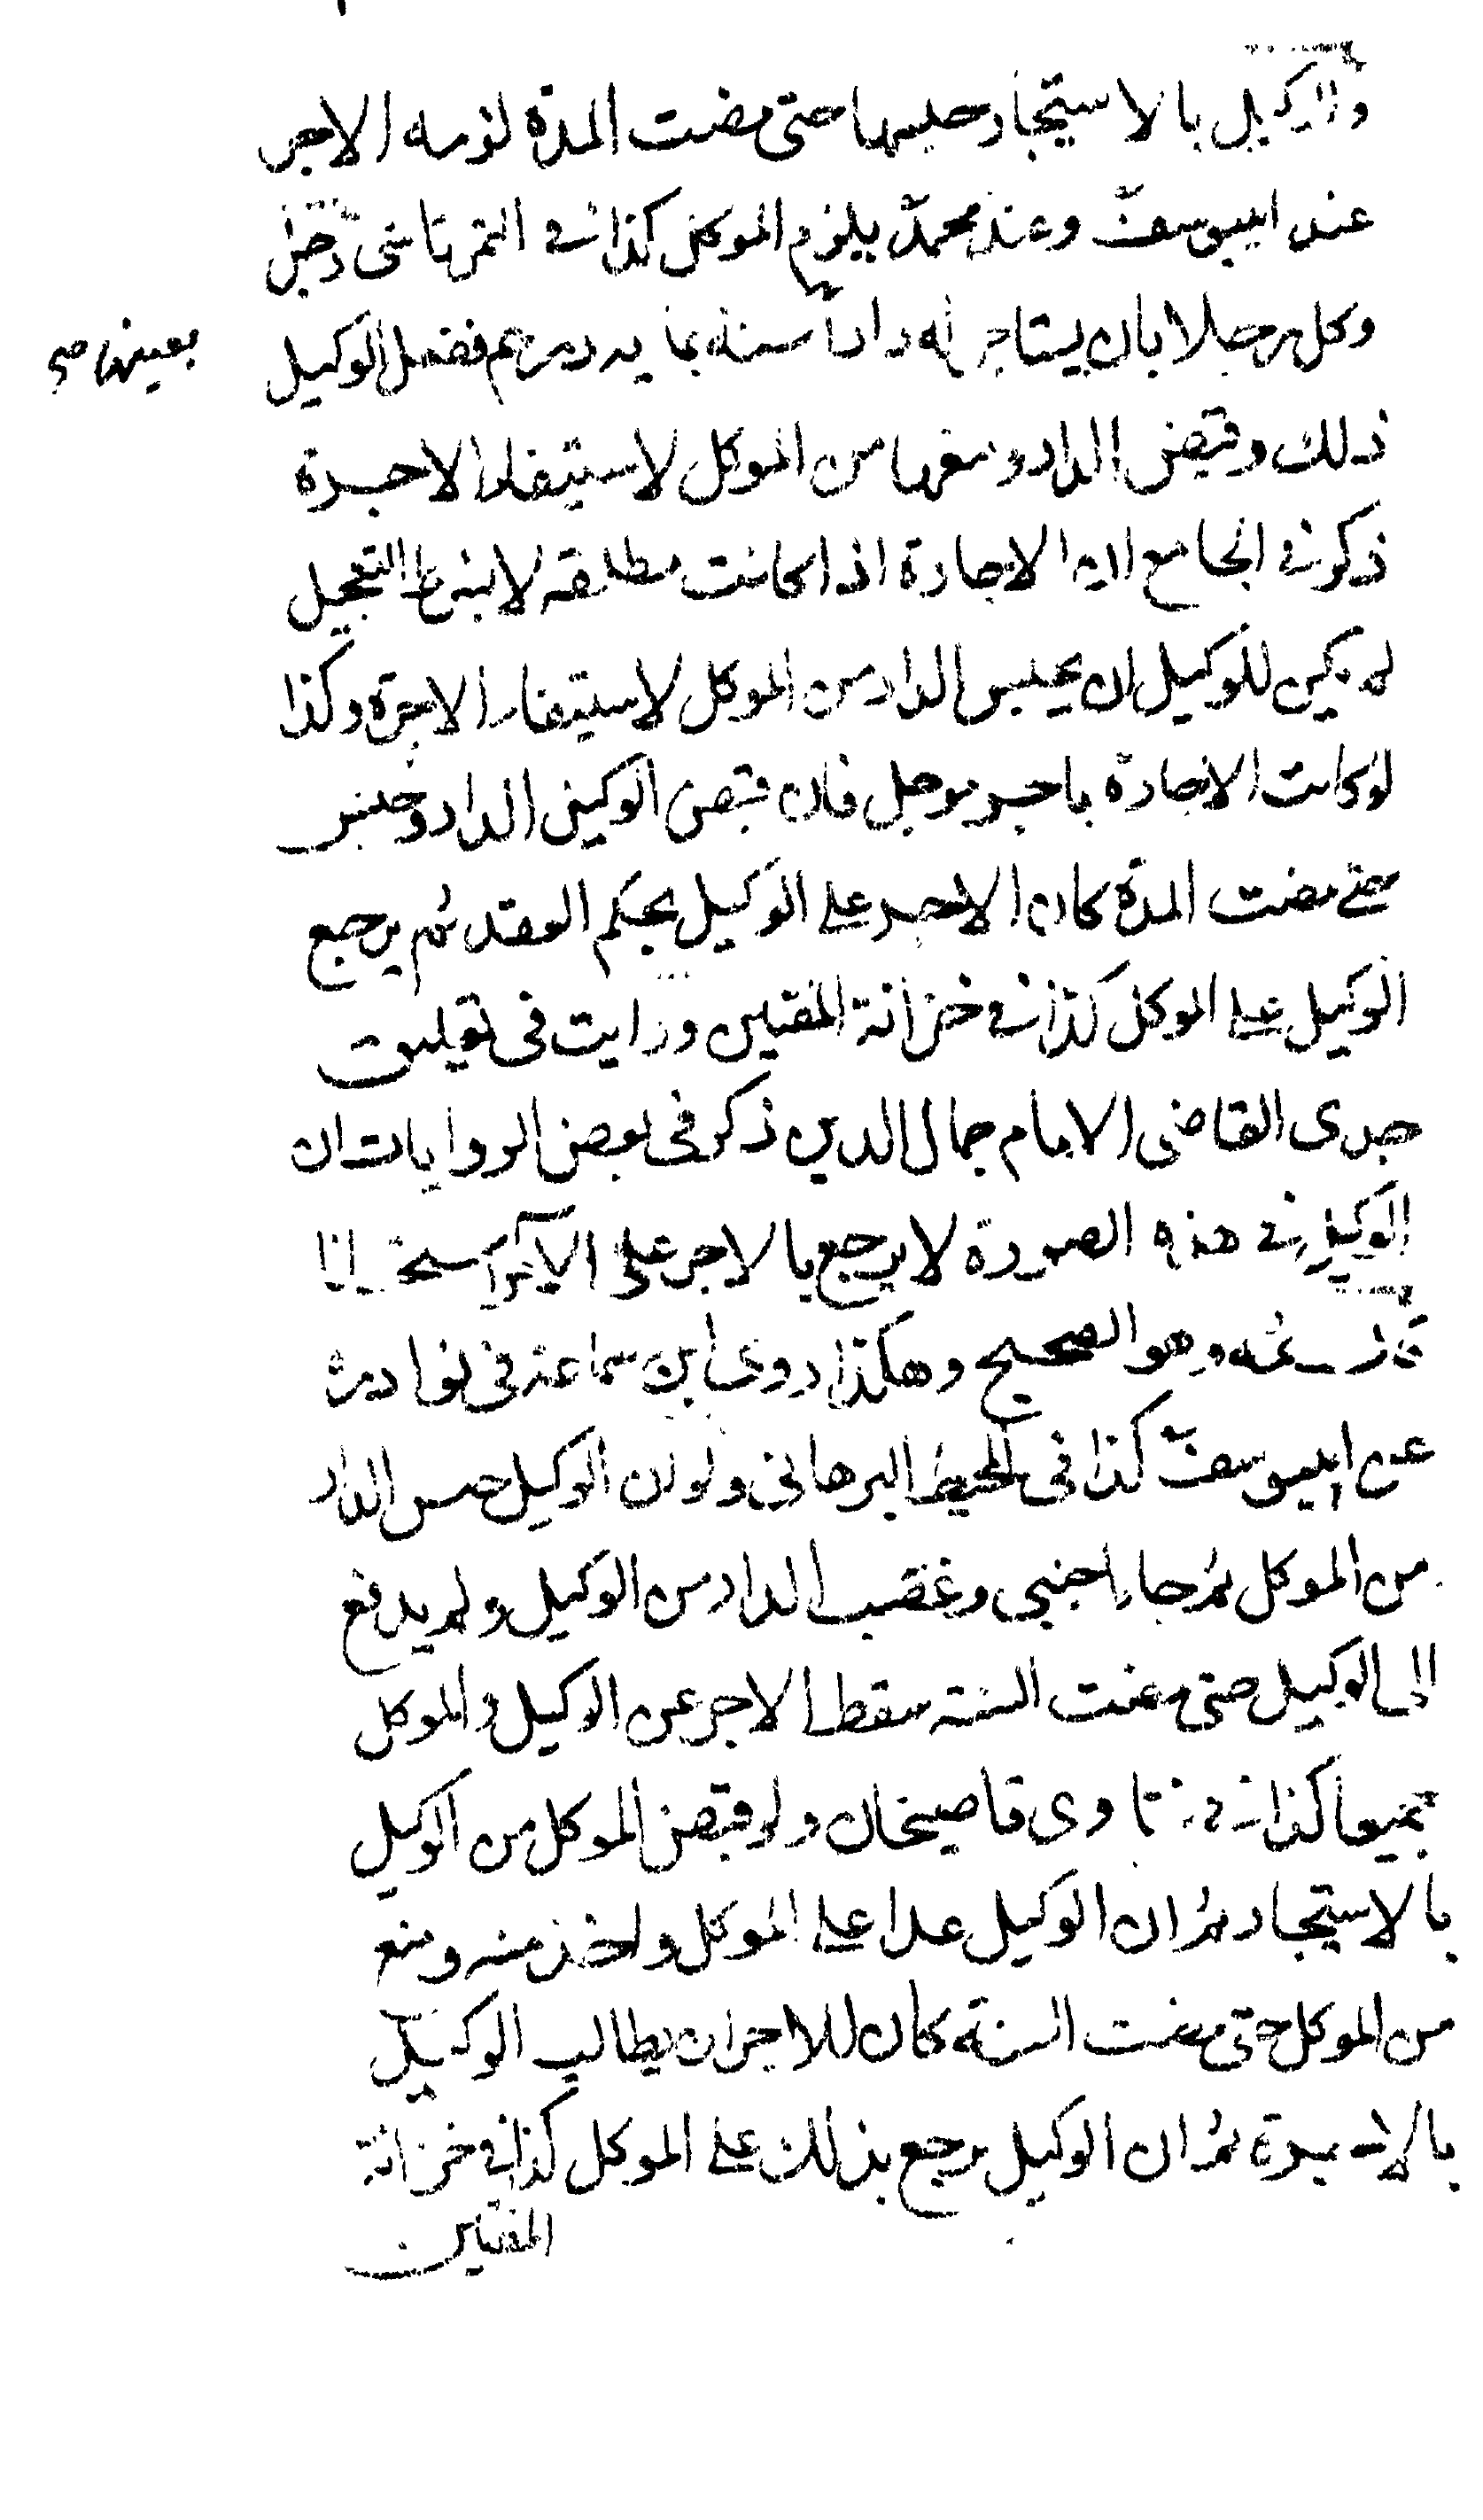 والوكيل بالاستيجار حبسها حتى مضت المدة لزمه الاجر
عند ابيوسف وعند محمد يلزم الموكل كذا في التمرتاشي رجل
وكل رجلا بان يستاجر له دارا سنة بماية درهم ففعل الوكيل
بعينها صح
ذلك وقبض الدار ومنعها من الموكل لاستيفاء الاجرة
ذكر في الجامع ان الاجارة اذا كانت مطلقة لا بشرط التعجيل
لم يكن للوكيل ان يحبس الدار من الموكل لاستيفاء الاجرة وكذا
لو كانت الاجارة باجر موجل فان قبض الوكيل الدار وحبس
حتى مضت المدة كان الاجر على الوكيل بحكم العقد ثم يرجع
الوكيل على الموكل كذا في خزانة المفتين ورايت في تعليق
جدى القاضى الامام جمال الدين ذكر في بعض الروايات ان
الوكيل في هذه الصورة لا يرجع بالاجر على الآمر استحسانا
قال رحمه وهو الصحيح وهكذا روى ابن سماعة في نوادره
عن ابيوسف كذا في المحيط البرهاني ولو ان الوكيل حبس الدار
من الموكل ثم جاء اجنبي وغصب الدار من الوكيل ولم يدفع
الى الوكيل حتى مضت السنة سقط الاجر عن الوكيل والموكل
جميعا كذا في فتاوى قاضيخان ولو قبض الموكل من الوكيل
بالاستيجار ثم ان الوكيل عدا على الموكل واخذ منه ومنع
من الموكل حتى مضت السنة كان للاجر ان يطالب الوكيل
بالاجرة ثم ان الوكيل يرجع بذلك على الموكل كذا في خزانة
المفتين